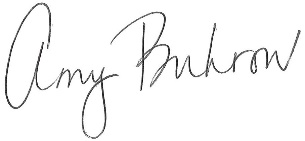 Amy Buhrow